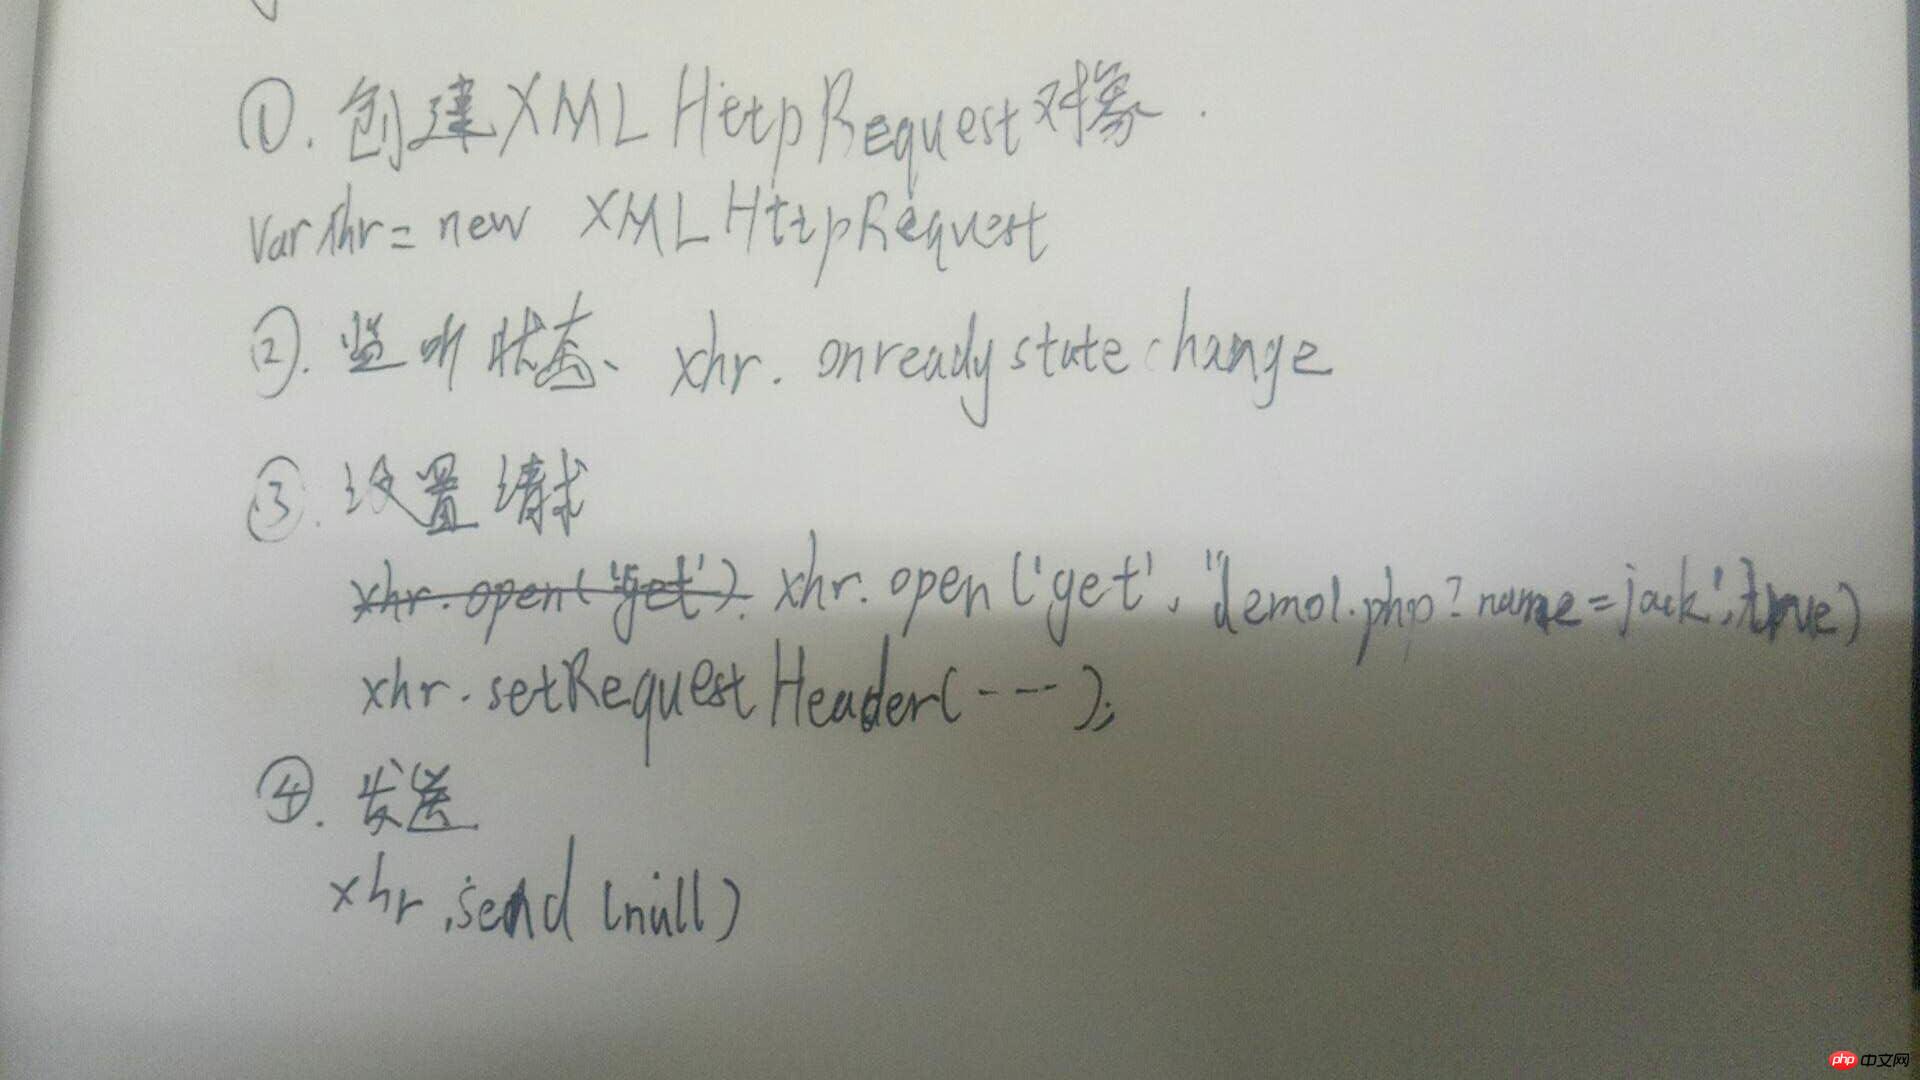 ①. 创建XMLHttpRequest对象.
var xhr = new XMLHttpRequest
②. 监听状态、xhr.onreadystatechange
③. 设置请求
xhr.open('get'). xhr.open('get', "demo1.php?name=jack',true)
xhr.setRequestHeader(----);
④. 发送
xhr.send(null)
php 中文网